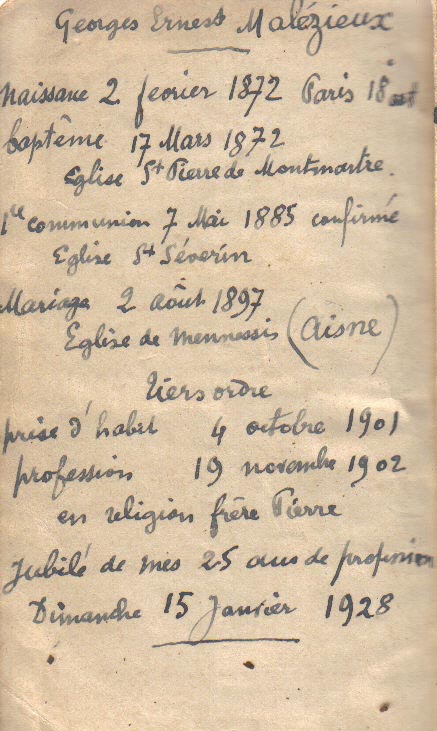 Georges Ernest Malézieux
naissance 2 fevrier 1872 Paris 18
baptême 17 Mars 1872
Eglise St Pierre de Montmartre.
1re communion 7 Mai 1885 confirmé
Eglise St Séverin
Mariage 2 août 1897
Eglise de Mennessis (Aisne)
Tiers ordre
prise d'habit 4 octobre 1901
profession 19 novembre 1902
en religion frère Pierre
Jubilé de mes 25 ans de profession
Dimanche 15 Janvier 1928